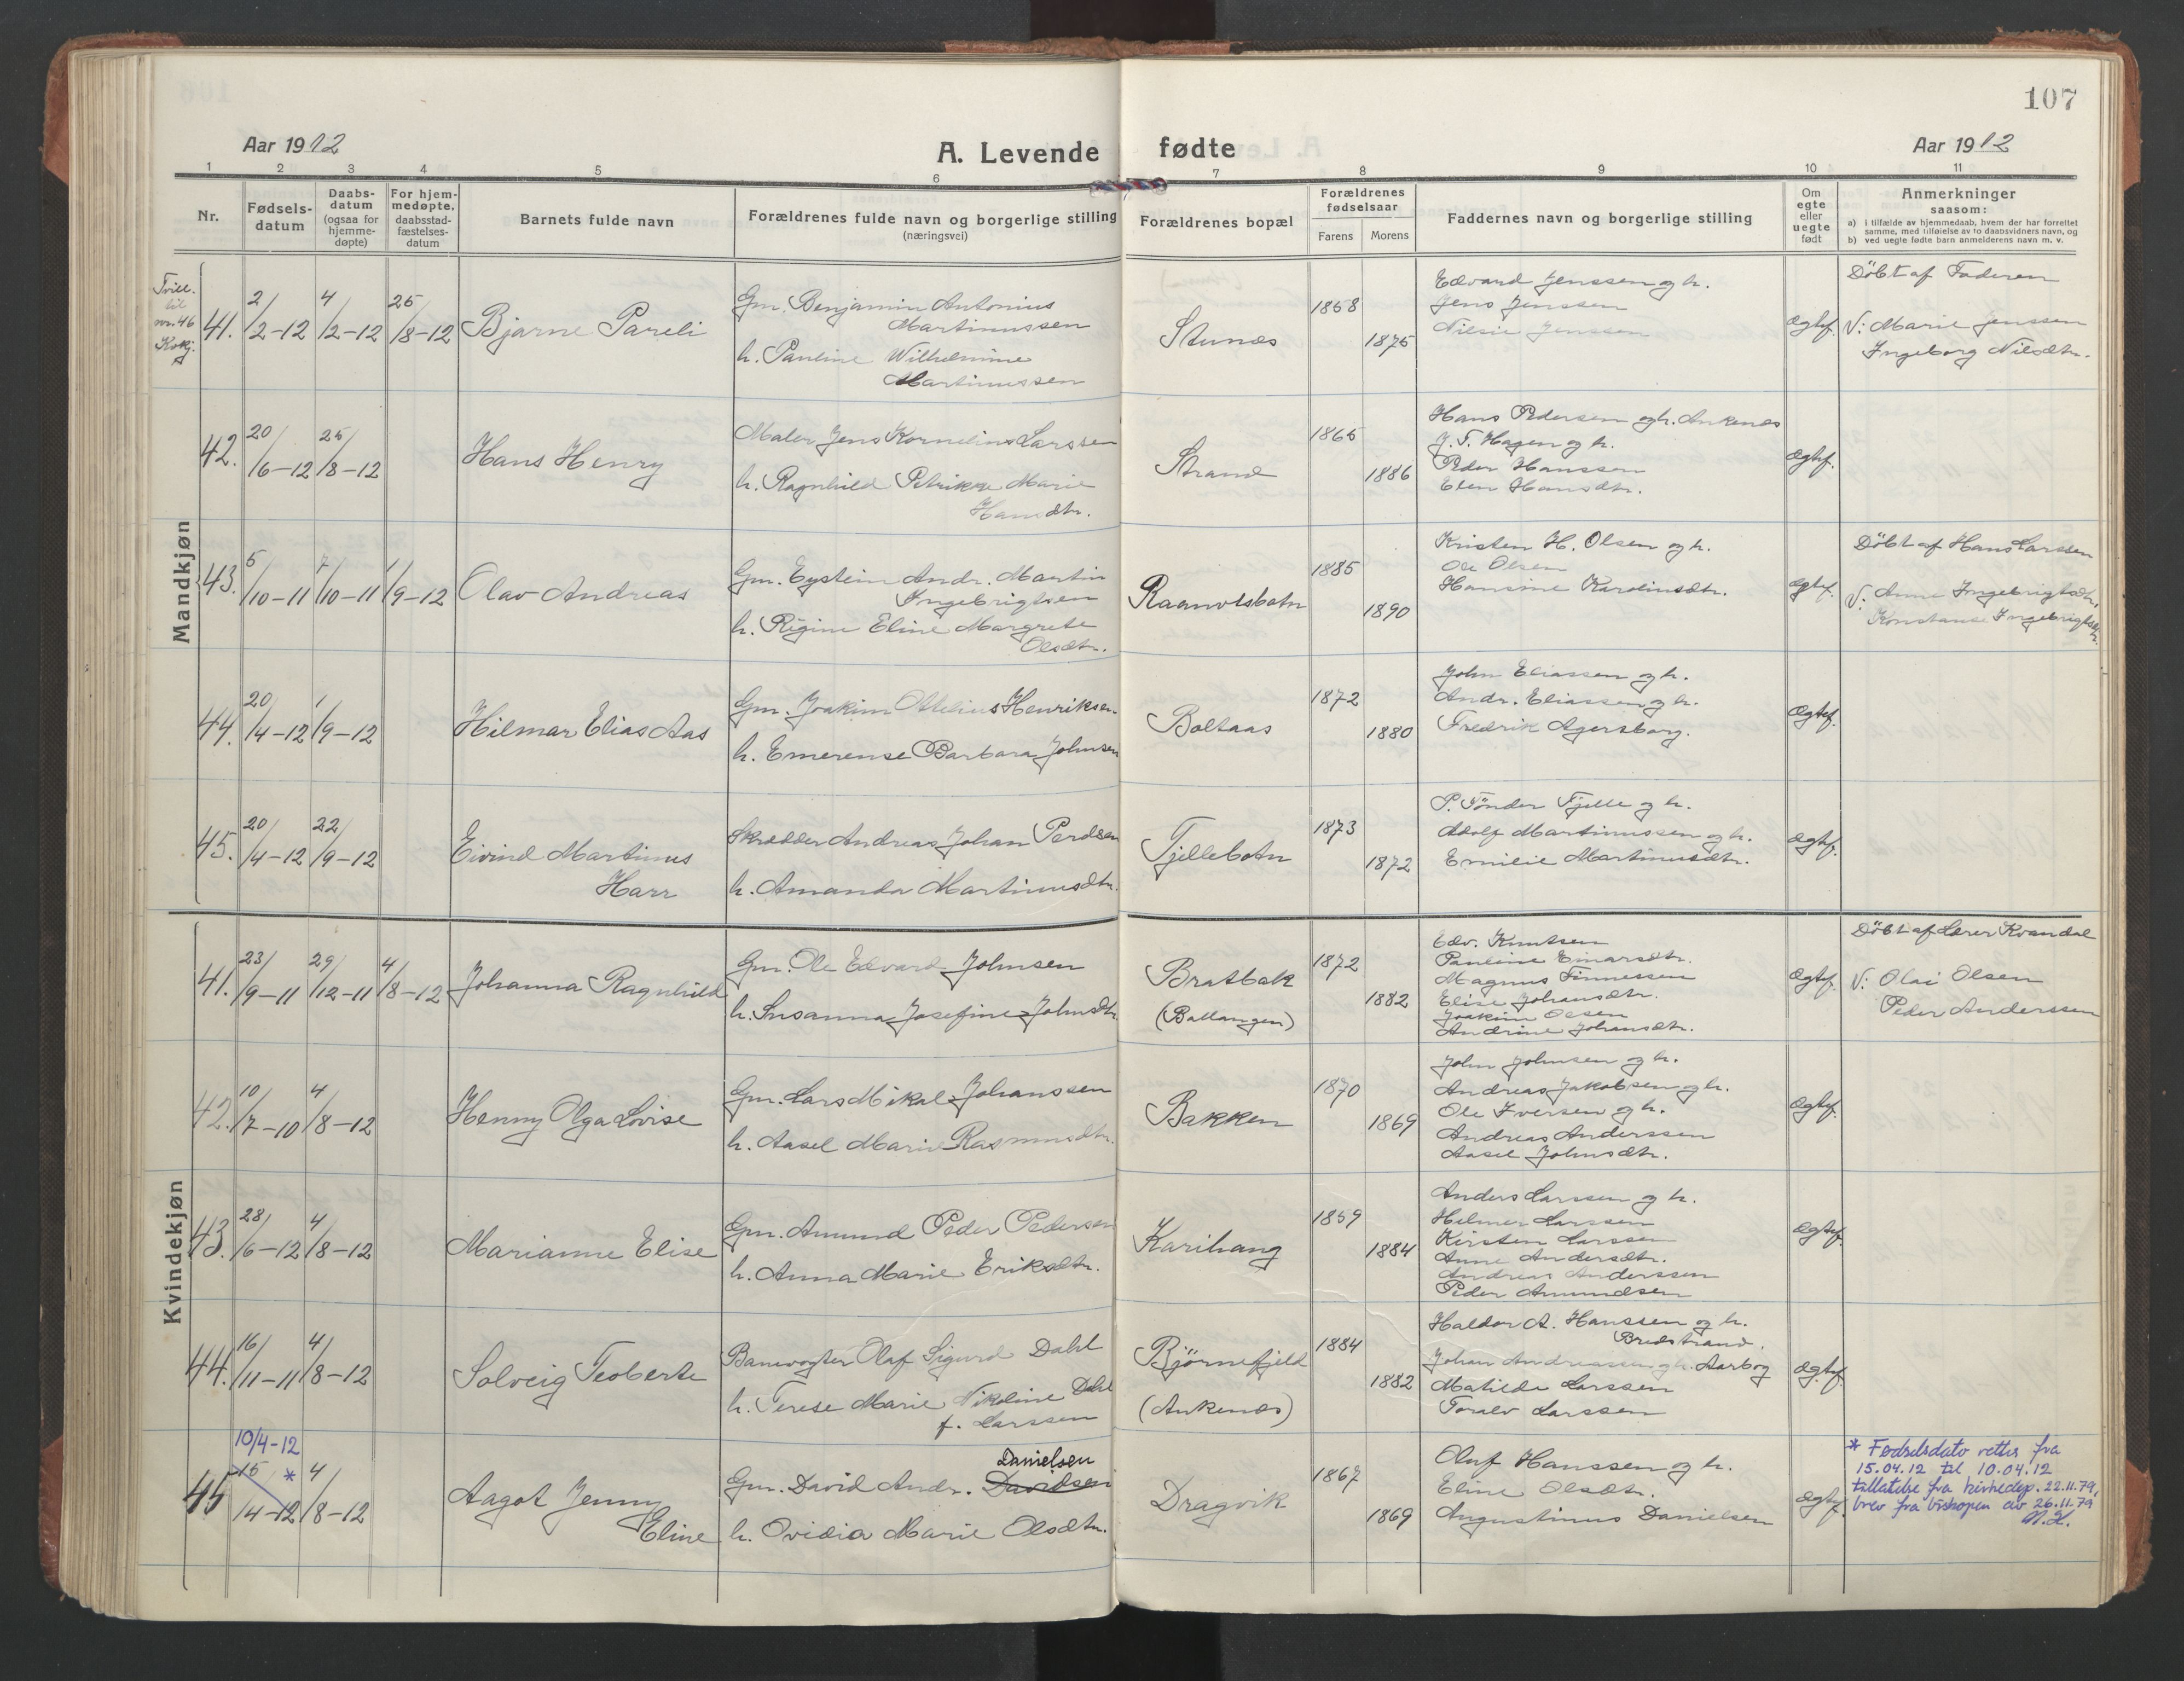 107
Aar 1912
A. Levende fødte
Aar 1912
1 2 3 4 5 6 7 8 9 10 11
Nr.
Fødselsdatum
Daabsdatum (ogsaa for hjemmedøpte)
For hjemmedøpte, daabsstadfæstelsesdatum
Barnets fulde navn
Forældrenes fulde navn og borgerlige stilling (næringsvei)
Forældrenes bopæl
Forældrenes fødselsaar
Farens Morens
Faddernes navn og borgerlige stilling
Om egte eller uegte født
Anmerkninger
saasom:
a) i tilfælde av hjemmedaab, hvem der har forrettet samme, med tilføielse av to daabsvidners navn, og
b) ved uegte fødte barn anmelderens navn m. v.
Mandkjøn
Tvill. til nr. 46 Kvkj.
41. 2/2-12 4/2-12 25/8-12 Bjarne Pareli
Gm. Benjamin Antonius
Martinussen
h. Pauline Wilhelmine
Martinussen
Stunes 1868 1875
Edvard Jenssen og h.
Jens Jenssen
Nilsie Jenssen
Ægtef.
Döbt af Faderen
V: Marie Jenssen
Ingeborg Nilsdtr.
42. 20/6-12 25/8-12 Hans Henry
Maler Jens Kornelius Larssen
h. Ragnhild Petrikke Marie
Hansdtr.
Strand 1865 1886
Hans Pedersen og h. Ankenes
J. T. Hagen og h.
Peder Hanssen
Elen Hansdtr.
Ægtef.
43. 5/10-11 7/10-11 1/9-12 Olav Andreas
Gm. Eystein Andr. Martin
Ingebrigtsen
h. Regine Eline Margrete
Olsdtr.
Raanvolsbotn 1885 1890
Kristen H. Olsen og h.
Ole Olsen
Hansine Karolinsdtr.
Ægtef.
Döbt af Hans Larssen
V: Anne Ingebrigtsdtr,
Konstanse Ingebrigtsdtr.
44. 20/4-12 1/9-12 Hilmar Elias Aas
Gm. Joakim Ottelius Henriksen
h. Emerense Barbara Johnsen
Boltaas 1872 1880
John Eliassen og h.
Andr. Eliassen og h.
Fredrik Agersborg.
Ægtef.
45. 20/4-12 22/9-12 Eivind Martinus
Harr
Skrædder Andreas Johan Perdsen
h. Amanda Martinusdtr.
Fjellebotn 1873 1872
P. Tönder Fjelle og h.
Adolf Martinussen og h.
Emilie Martinusdtr.
Ægtef.
Kvindekjøn
41. 23/9-11 29/12-11 4/8-12 Johanna Ragnhild
Gm. Ole Edvard Johnsen
h. Susanna Josefine Johnsdtr.
Bratbak
(Ballangen)
1872 1882
Edv. Knutsen
Pauline Einarsdtr.
Magnus Finnessen
Elise Johansdtr.
Joakim Olsen
Andrine Johansdtr.
Ægtef.
Döbt af Lærer Kvandal
V: Olai Olsen
Peder Anderssen
42. 10/7-10 4/8-12 Henny Olga Lovise
Gm. Lars Mikal Johanssen
h. Aasel Marie Rasmusdtr.
Bakken 1870 1869
John Johnsen og h.
Andreas Jakobsen og h.
Ole Iversen og h.
Andreas Anderssen
Aasel Johnsdtr.
Ægtef.
43. 28/6-12 4/8-12 Marianne Elise
Gm. Amund Peder Pedersen
h. Anna Marie Eriksdtr.
Karihaug 1859 1884
Anders Larssen og h.
Hilmer Larssen
Kirsten Larssen
Anne Andersdtr.
Andreas Anderssen
Peder Amundsen
Ægtef.
44. 16/11-11 4/8-12 Solveig Teoberte
Banevogter Olaf Sigurd Dahl
h. Terese Marie Nikoline Dahl
f. Larssen
Björnefjeld
(Ankenes)
1884 1882
Haldor A. Hanssen og h.
Bredstrand.
Johan Andreassen og h. Aarbog
Matilde Larssen
Toralv Larssen
Ægtef.
10/4-12
45 15/4-12 * 4/8-12 Aagot Jenny
Eline
Danielsen
Gm. David Andr. Davidsen
h. Ovidia Marie Olsdtr.
Dragvik 1867 1869
Oluf Hanssen og h.
Eline Olsdtr.
Augustinus Danielsen
Ægtef.
* Fødselsdato rettes fra
15.04.12 til 10.04.12
tillatelse fra kirkedep. 22.11.79,
brev fra biskopen av 26.11.79